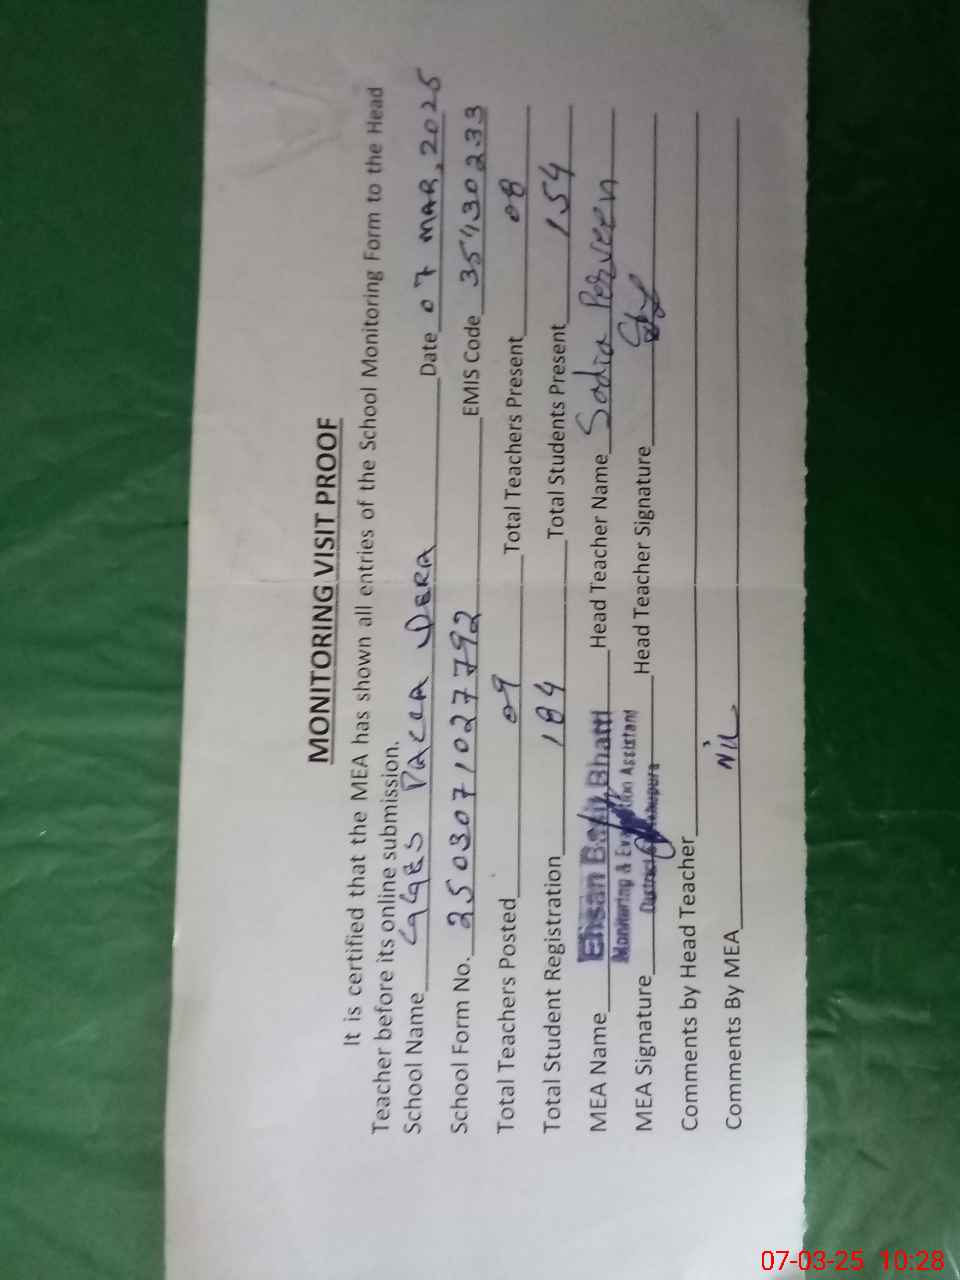 MONITORING VISIT PROOF
It is certified that the MEA has shown all entries of the School Monitoring Form to the Head
Teacher before its online submission.
School Name GGES PACCA DERA Date 07 MAR, 2025
School Form No. 2503071027792 EMIS Code 35430233
Total Teachers Posted 09 Total Teachers Present 08
Total Student Registration 184 Total Students Present 154
MEA Name Ehsan Bhatti Head Teacher Name Sadia Perveen
Monitoring & Evaluation Assistant
MEA Signature District Head Teacher Signature
Comments by Head Teacher
Comments By MEA Nil
07-03-25 10:28